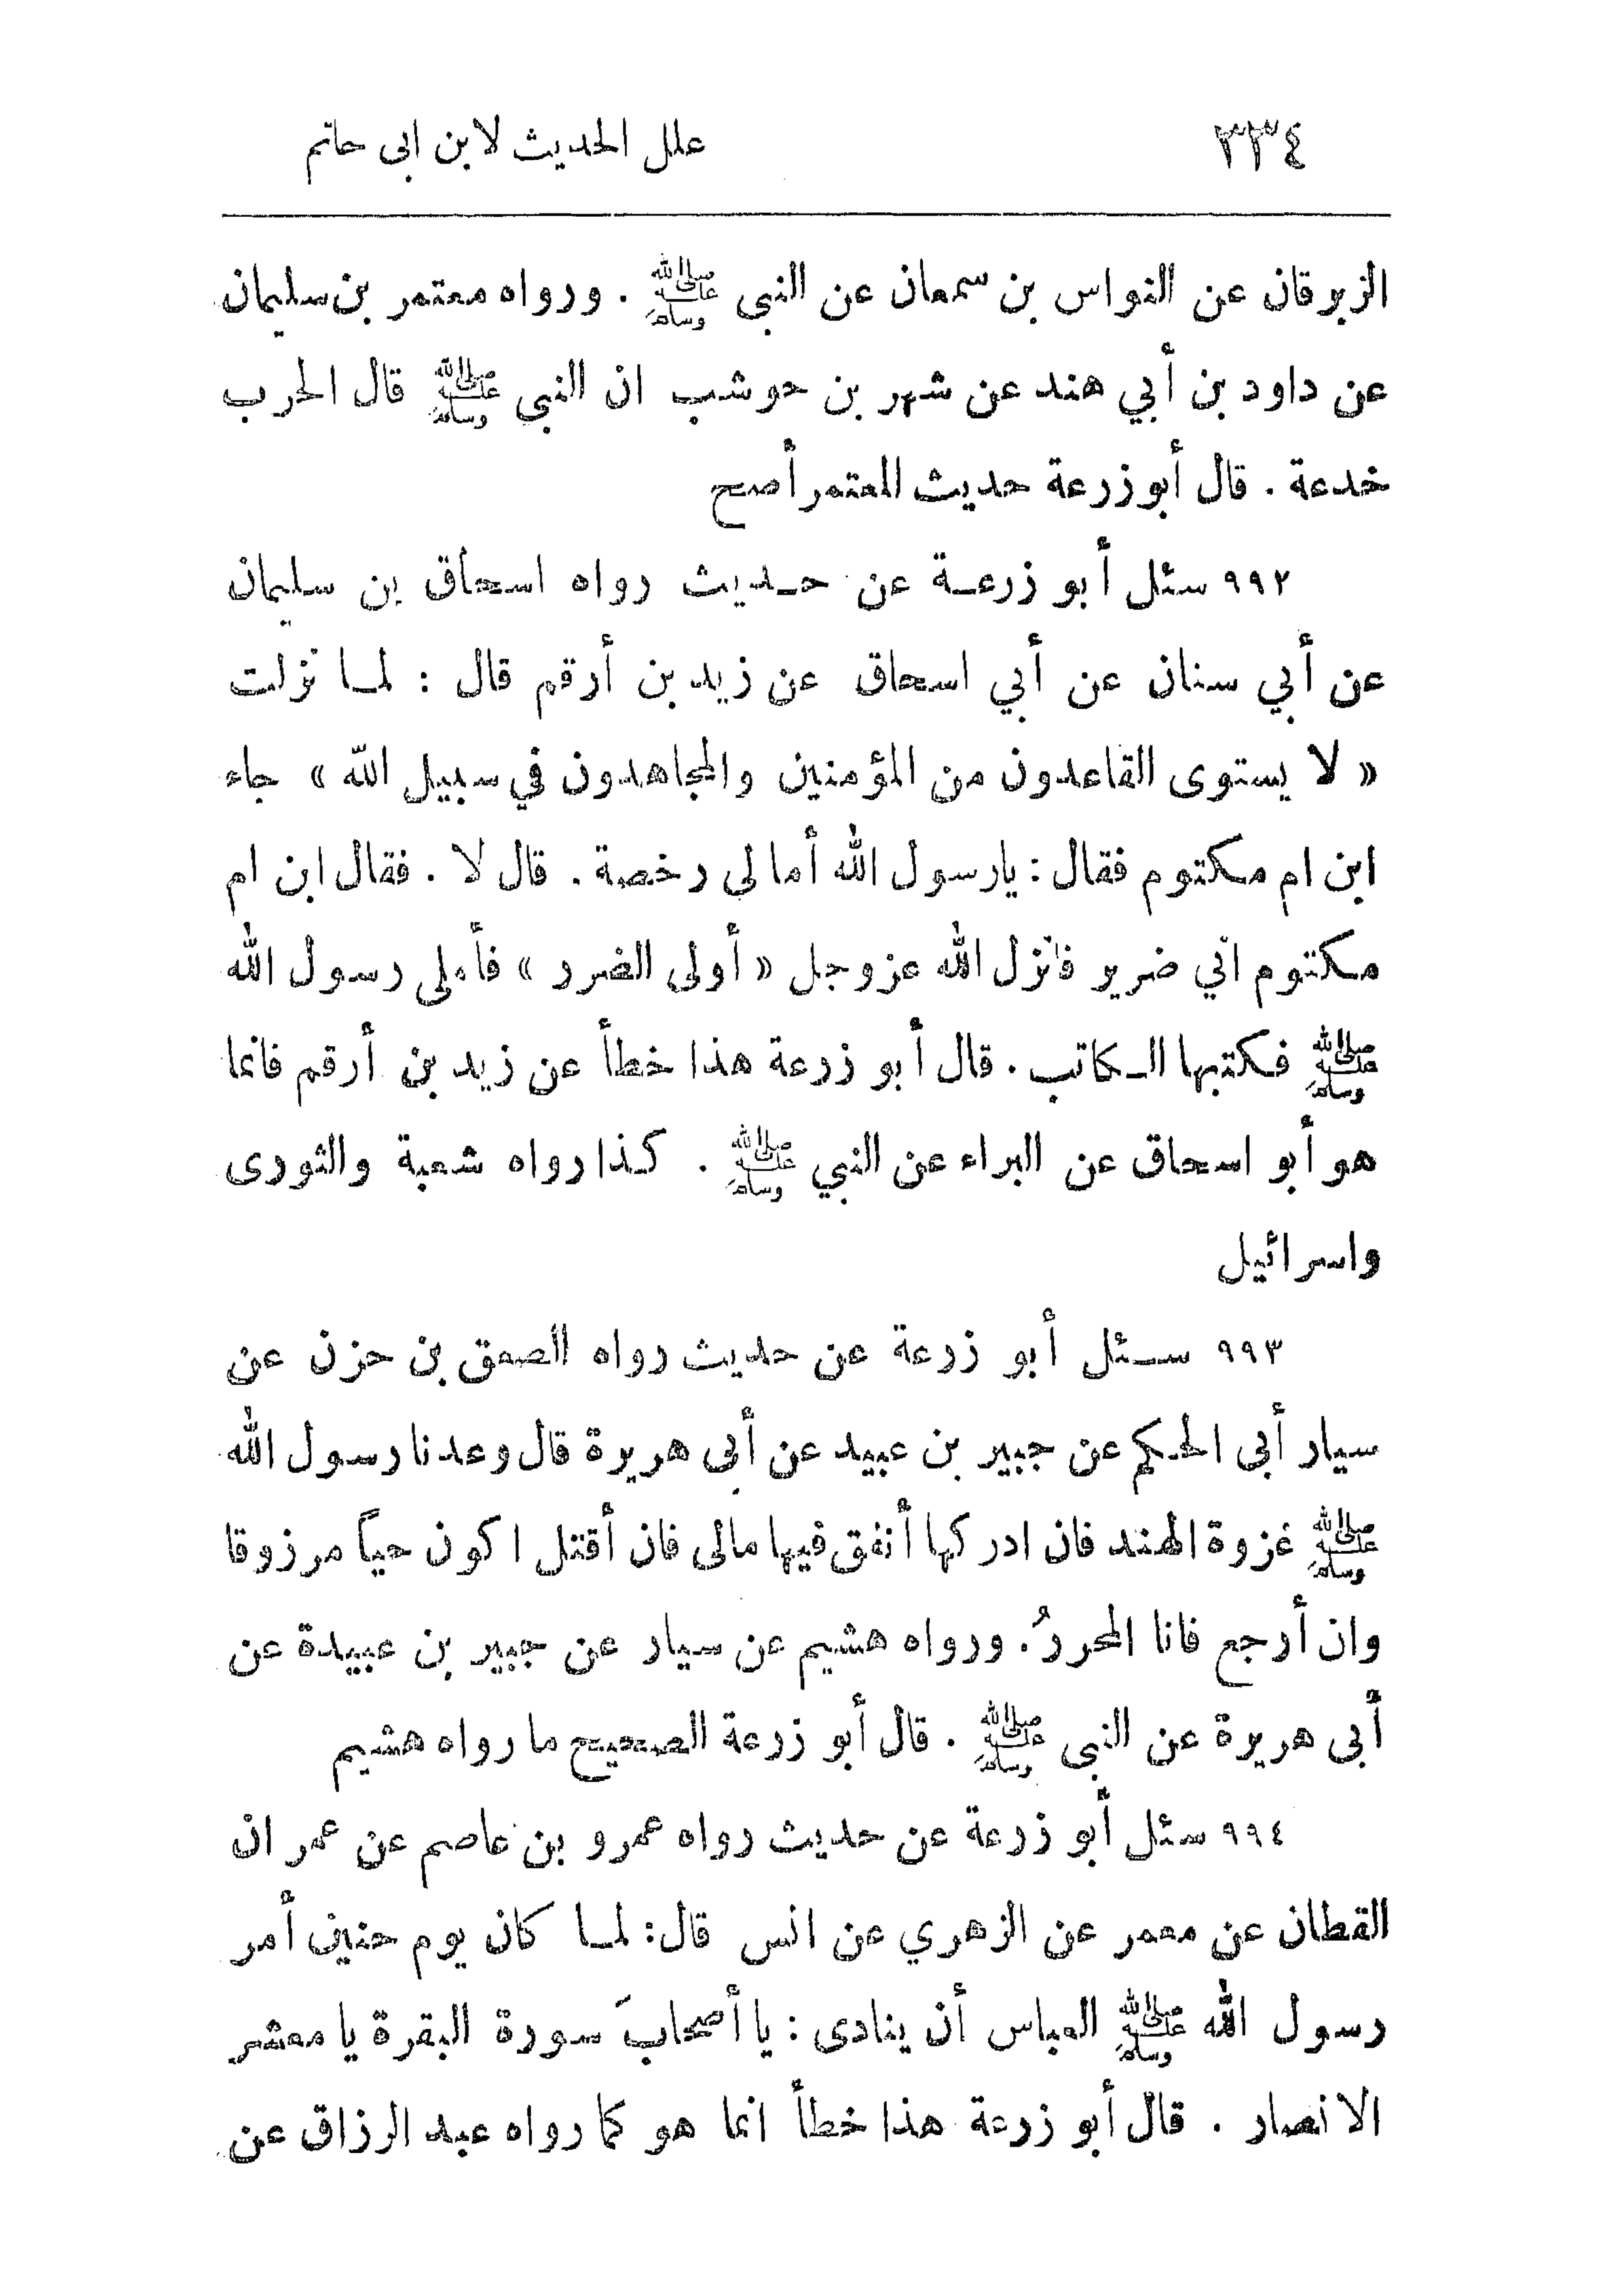 ٣٣٤ علل الحديث لابن ابى حاتم
الزبرقان عن النواس بن سمعان عن النبى ﷺ . ورواه معتمر بن سليمان
عن داود بن أبي هند عن شهر بن حوشب ان النبي ﷺ قال الحرب
خدعة . قال أبو زرعة حديث المعتمر أصح
٩٩٢ سئل أبو زرعة عن حديث رواه اسحاق بن سليمان
عن أبي سنان عن أبي اسحاق عن زيد بن أرقم قال : لما نزلت
« لا يستوى القاعدون من المؤمنين والمجاهدون في سبيل الله » جاء
ابن ام مكتوم فقال : يارسول الله أما لى رخصة . قال لا . فقال ابن ام
مكتوم اني ضرير فانزل الله عز وجل « أولى الضرر » فأملى رسول الله
ﷺ فكتبها الكاتب . قال أبو زرعة هذا خطأ عن زيد بن أرقم فانما
هو أبو اسحاق عن البراء عن النبي ﷺ . كذا رواه شعبة والثورى
واسرائيل
٩٩٣ سئل أبو زرعة عن حديث رواه الصعق بن حزن عن
سيار أبى الحكم عن جبير بن عبيد عن أبى هريرة قال وعدنا رسول الله
ﷺ غزوة الهند فان ادركها أنفق فيها مالى فان أقتل اكون حياً مرزوقا
وان أرجع فانا المحررُ . ورواه هشيم عن سيار عن جبير بن عبيدة عن
أبى هريرة عن النبى ﷺ . قال أبو زرعة الصحيح ما رواه هشيم
٩٩٤ سئل أبو زرعة عن حديث رواه عمرو بن عاصم عن عمران
القطان عن معمر عن الزهري عن انس قال : لما كان يوم حنين أمر
رسول الله ﷺ العباس أن ينادى : يا أصحابَ سورة البقرة يا معشر
الانصار . قال أبو زرعة هذا خطأ انما هو كما رواه عبد الرزاق عن